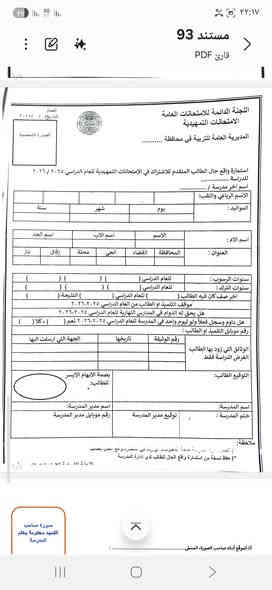 ٢٢:١٧
مستند 93
قارئ PDF
اللجنة الدائمة للامتحانات العامة
الامتحانات التمهيدية
المديرية العامة للتربية في محافظة ..........
العدد
استمارة واقع حال الطالب المتقدم للاشتراك في الامتحانات التمهيدية للعام الدراسي ٢٠٢٥ / ٢٠٢٦
للدراسة
اسم اخر مدرسة /
الاسم الرباعي واللقب:
المواليد: يوم شهر سنة
اسم الام: الاسم اسم الاب اسم الجد
العنوان: المحافظة القضاء الحي محلة زقاق دار
سنوات الرسوب: ( ) للعام الدراسي ( )
سنوات الترك: ( ) للعام الدراسي ( )
اخر صف كان فيه الطالب ( ) للعام الدراسي ( ) النتيجة ( )
موقف التلميذ او الطالب من العام الدراسي ٢٠٢٥-٢٠٢٦
هل يحق له الدوام في المدارس النهارية للعام الدراسي ٢٠٢٥-٢٠٢٦
هل داوم وسجل فعلاً ولو ليوم واحد في المدرسة للعام الدراسي ٢٠٢٥-٢٠٢٦ نعم ( ) ، كلا ( )
رقم موبايل التلميذ او الطالب:
الوثائق التي زود بها الطالب
لغرض الدراسة فقط
رقم الوثيقة تاريخها الجهة التي ارسلت اليها
التوقيع الطالب:
بصمة الابهام الايسر
للطالب:
اسم المدرسة: اسم مدير المدرسة:
ختم المدرسة / توقيع مدير المدرسة رقم موبايل مدير المدرسة
ملاحظة:
صورة صاحب
المدرسة